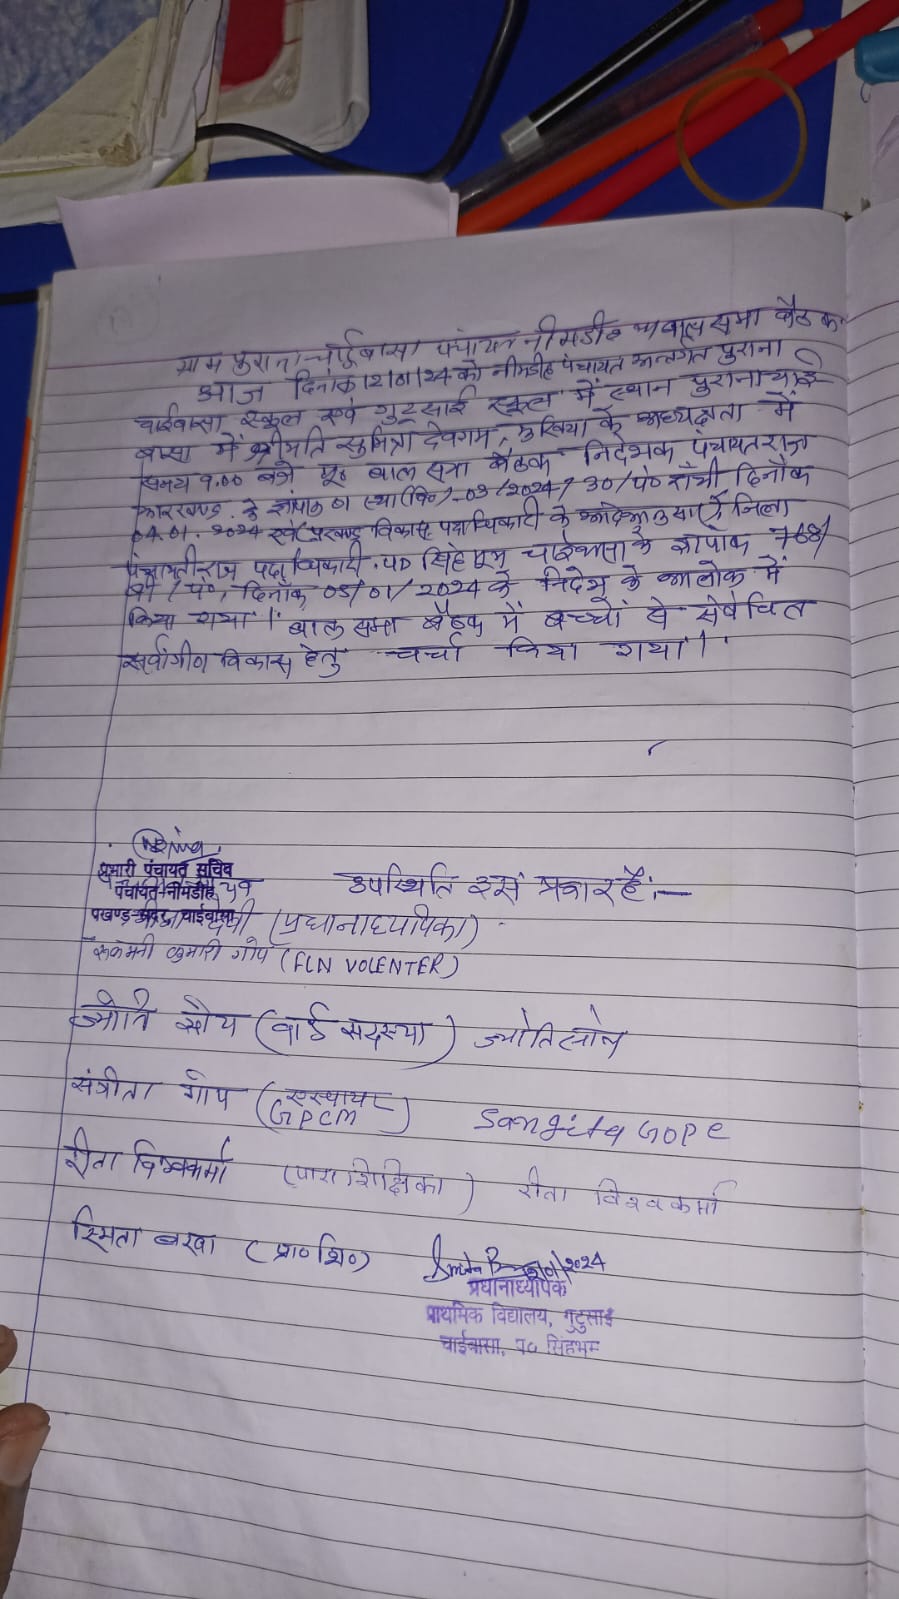 ग्राम पुराना चाईबासा पंचायत नीमडीह बाल सभा बैठक
आज दिनांक 12/01/24 को नीमडीह पंचायत अन्तर्गत पुराना
चाईबासा स्कूल एवं गुटूसाई स्कूल में स्थान पुराना चाई-
बासा में श्रीमति सुमित्रा देवगम, मुखिया के अध्यक्षता में
समय 9.00 बजे पू० बाल सभा बैठक निदेशक पंचायतराज
झारखण्ड के ज्ञापांक 01 स्था(वि०)-03/2024/30/पं० राँची दिनाँक
04.01.2024 एवं प्रखण्ड विकास पदाधिकारी के आदेशानुसार जिला
पंचायतीराज पदाधिकारी, प० सिंहभूम चाईबासा के ज्ञापांक 768/
पं०, दिनाँक 05/01/2024 के निदेश के आलोक में
किया गया। बाल सभा बैठक में बच्चों से संबंधित
सर्वांगीण विकास हेतु चर्चा किया गया।
प्रभारी पंचायत सचिव
पंचायत-नीमडीह
प्रखण्ड-सदर चाईबासा
उपस्थिति इस प्रकार है:-
देवी (प्रधानाध्यापिका)
रूकमनी कुमारी गोप (FLN VOLENTER)
ज्योति सोय (वार्ड सदस्या) ज्योति सोय
संगीता गोप (GPCM) Sangita GOPE
रीता विश्वकर्मा (पारा शिक्षिका) रीता विश्वकर्मा
स्मिता बखा (प्रा० शि०)
प्रधानाध्यापक
प्राथमिक विद्यालय, गुटुसाई
चाईबासा, प० सिंहभूम